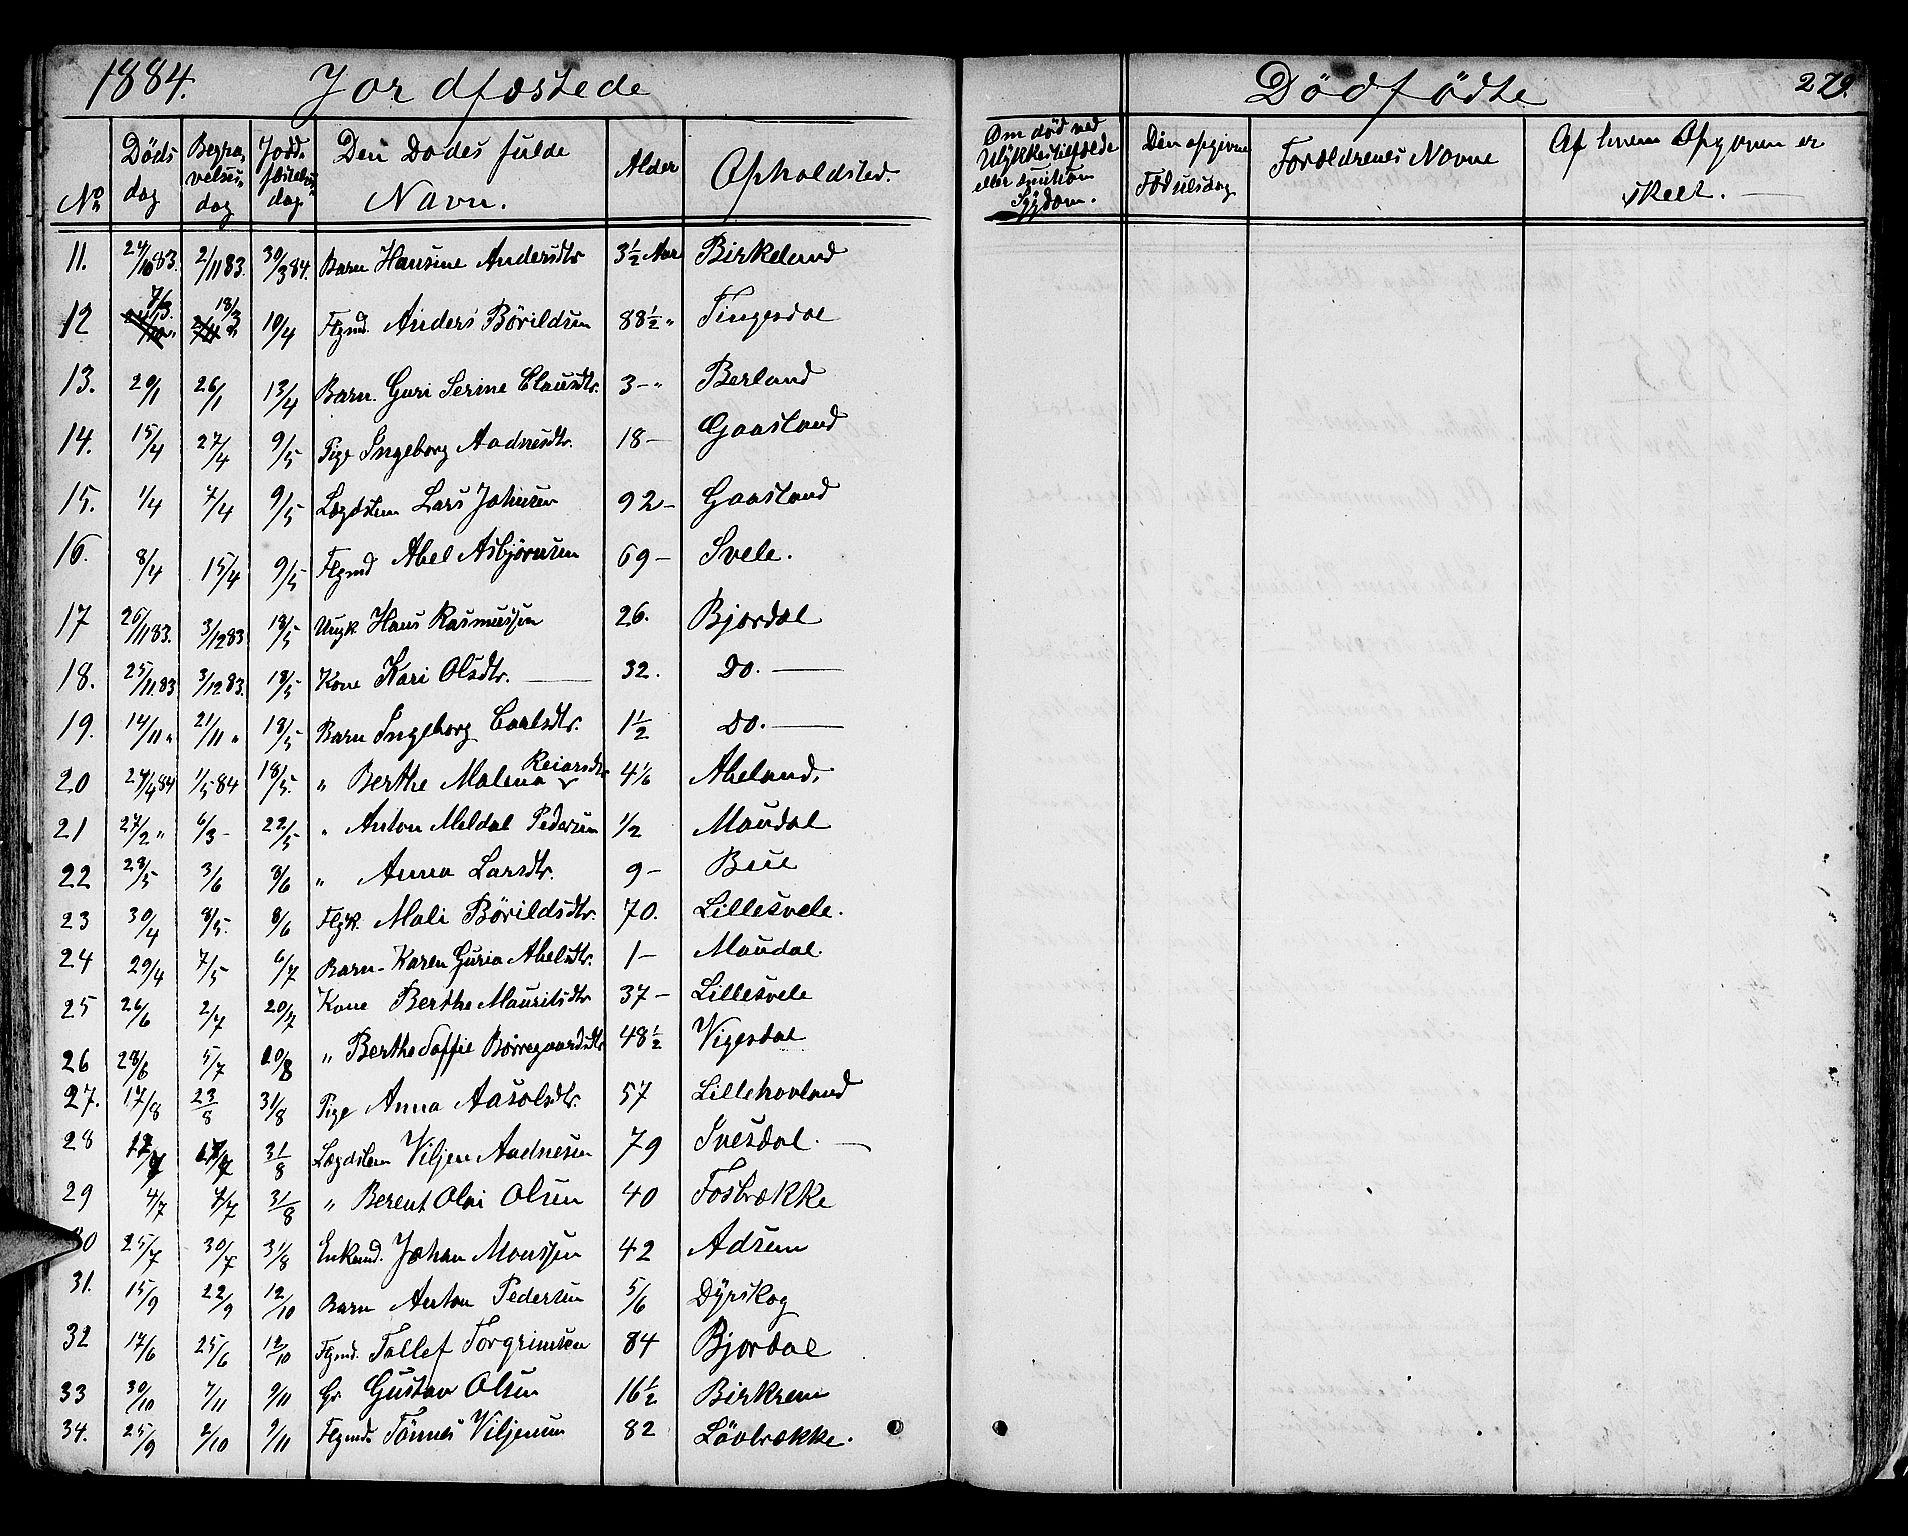 1884. Jordfæstede
Dødfødte 279.
No. Døds dag Begravelses dag Jordfæstelses dag Den Dødes fulde Navn. Alder Opholdsted. Om død ved Ulykkestilfælde eller smitsom Sygdom. Den opgivne Fødselsdag Forældrenes Navne Af hvem Opgaven er skeet.
11. 24/10 83. 2/11 83. 30/3 84. Barn Hansine Andersdtr 3½ Aar Birkeland
12 7/3. 13/3 10/4 Flgmd. Anders Börildsen 88½ " Tingesdal
13. 20/1 26/1 13/4 Barn. Guri Serine Clausdtr. 3 - " Berland
14. 15/4 27/4 9/5 Pige Ingeborg Aadnesdtr. 18 - Gaasland
15. 1/4 7/4 9/5 Lægdslem Lars Johnsen 92 - Gaasland
16. 8/4 15/4 9/5 Flgmd Abel Asbjörnsen 69 - Svele.
17 26/11 83. 3/12 83 18/5 Ungk. Hans Rasmussen 26. Bjordal
18. 25/11 83 3/12 83. 18/5 Kone Kari Olsdtr. 32. Do.
19. 14/11 " 21/11 " 18/5 Barn Ingeborg Carlsdtr. 1½ Do.
20 24/4 84 1/5 84 18/5. " Berthe Malena Reiarsdtr 4⅙ Aheland.
21 27/2 " 6/3 - 22/5 " Anton Meldal Pedersen ½ Maudal
22 28/5 3/6 8/6 " Anna Larsdtr. 9 - Bue
23 30/4 8/5. 8/6 Flgk. Mali Börildsdtr. 70. Lillesvele.
24 29/4 7/5 6/7 Barn - Karen Guria Abelsdtr. 1 - Maudal.
25 26/6 2/7 20/7 Kone Berthe Mauritsdtr 37 - Lillesvele
26 28/6 5/7 10/8 " Berthe Soffie Børregaardsdtr 48½ Vigesdal
27. 17/8 23/8 31/8 Pige Anna Aasolsdtr. 57 Lillehovland
28 12/7 17/7 31/8 Lægdslem Viljen Aadnesen 79 Ivesdal.
29 4/7 7/7 31/8 " Berent Olai Olsen 40 Fosbrække
30 25/7 30/7 31/8 Enkemd. Johan Monssen 42 Adsem
31. 15/9 22/9 12/10 Barn Anton Pedersen 5/6 Dyrskog
32 17/6 25/6 12/10 Flgmd. Tollef Torgrimsen 84 Bjordal
33 30/10 7/11 9/11 Gr. Gustav Olsen 16½ Birkrem
34. 25/9 2/10 9/11 Flgmd. Tönnes Viljemsen 82 Lövbrække.